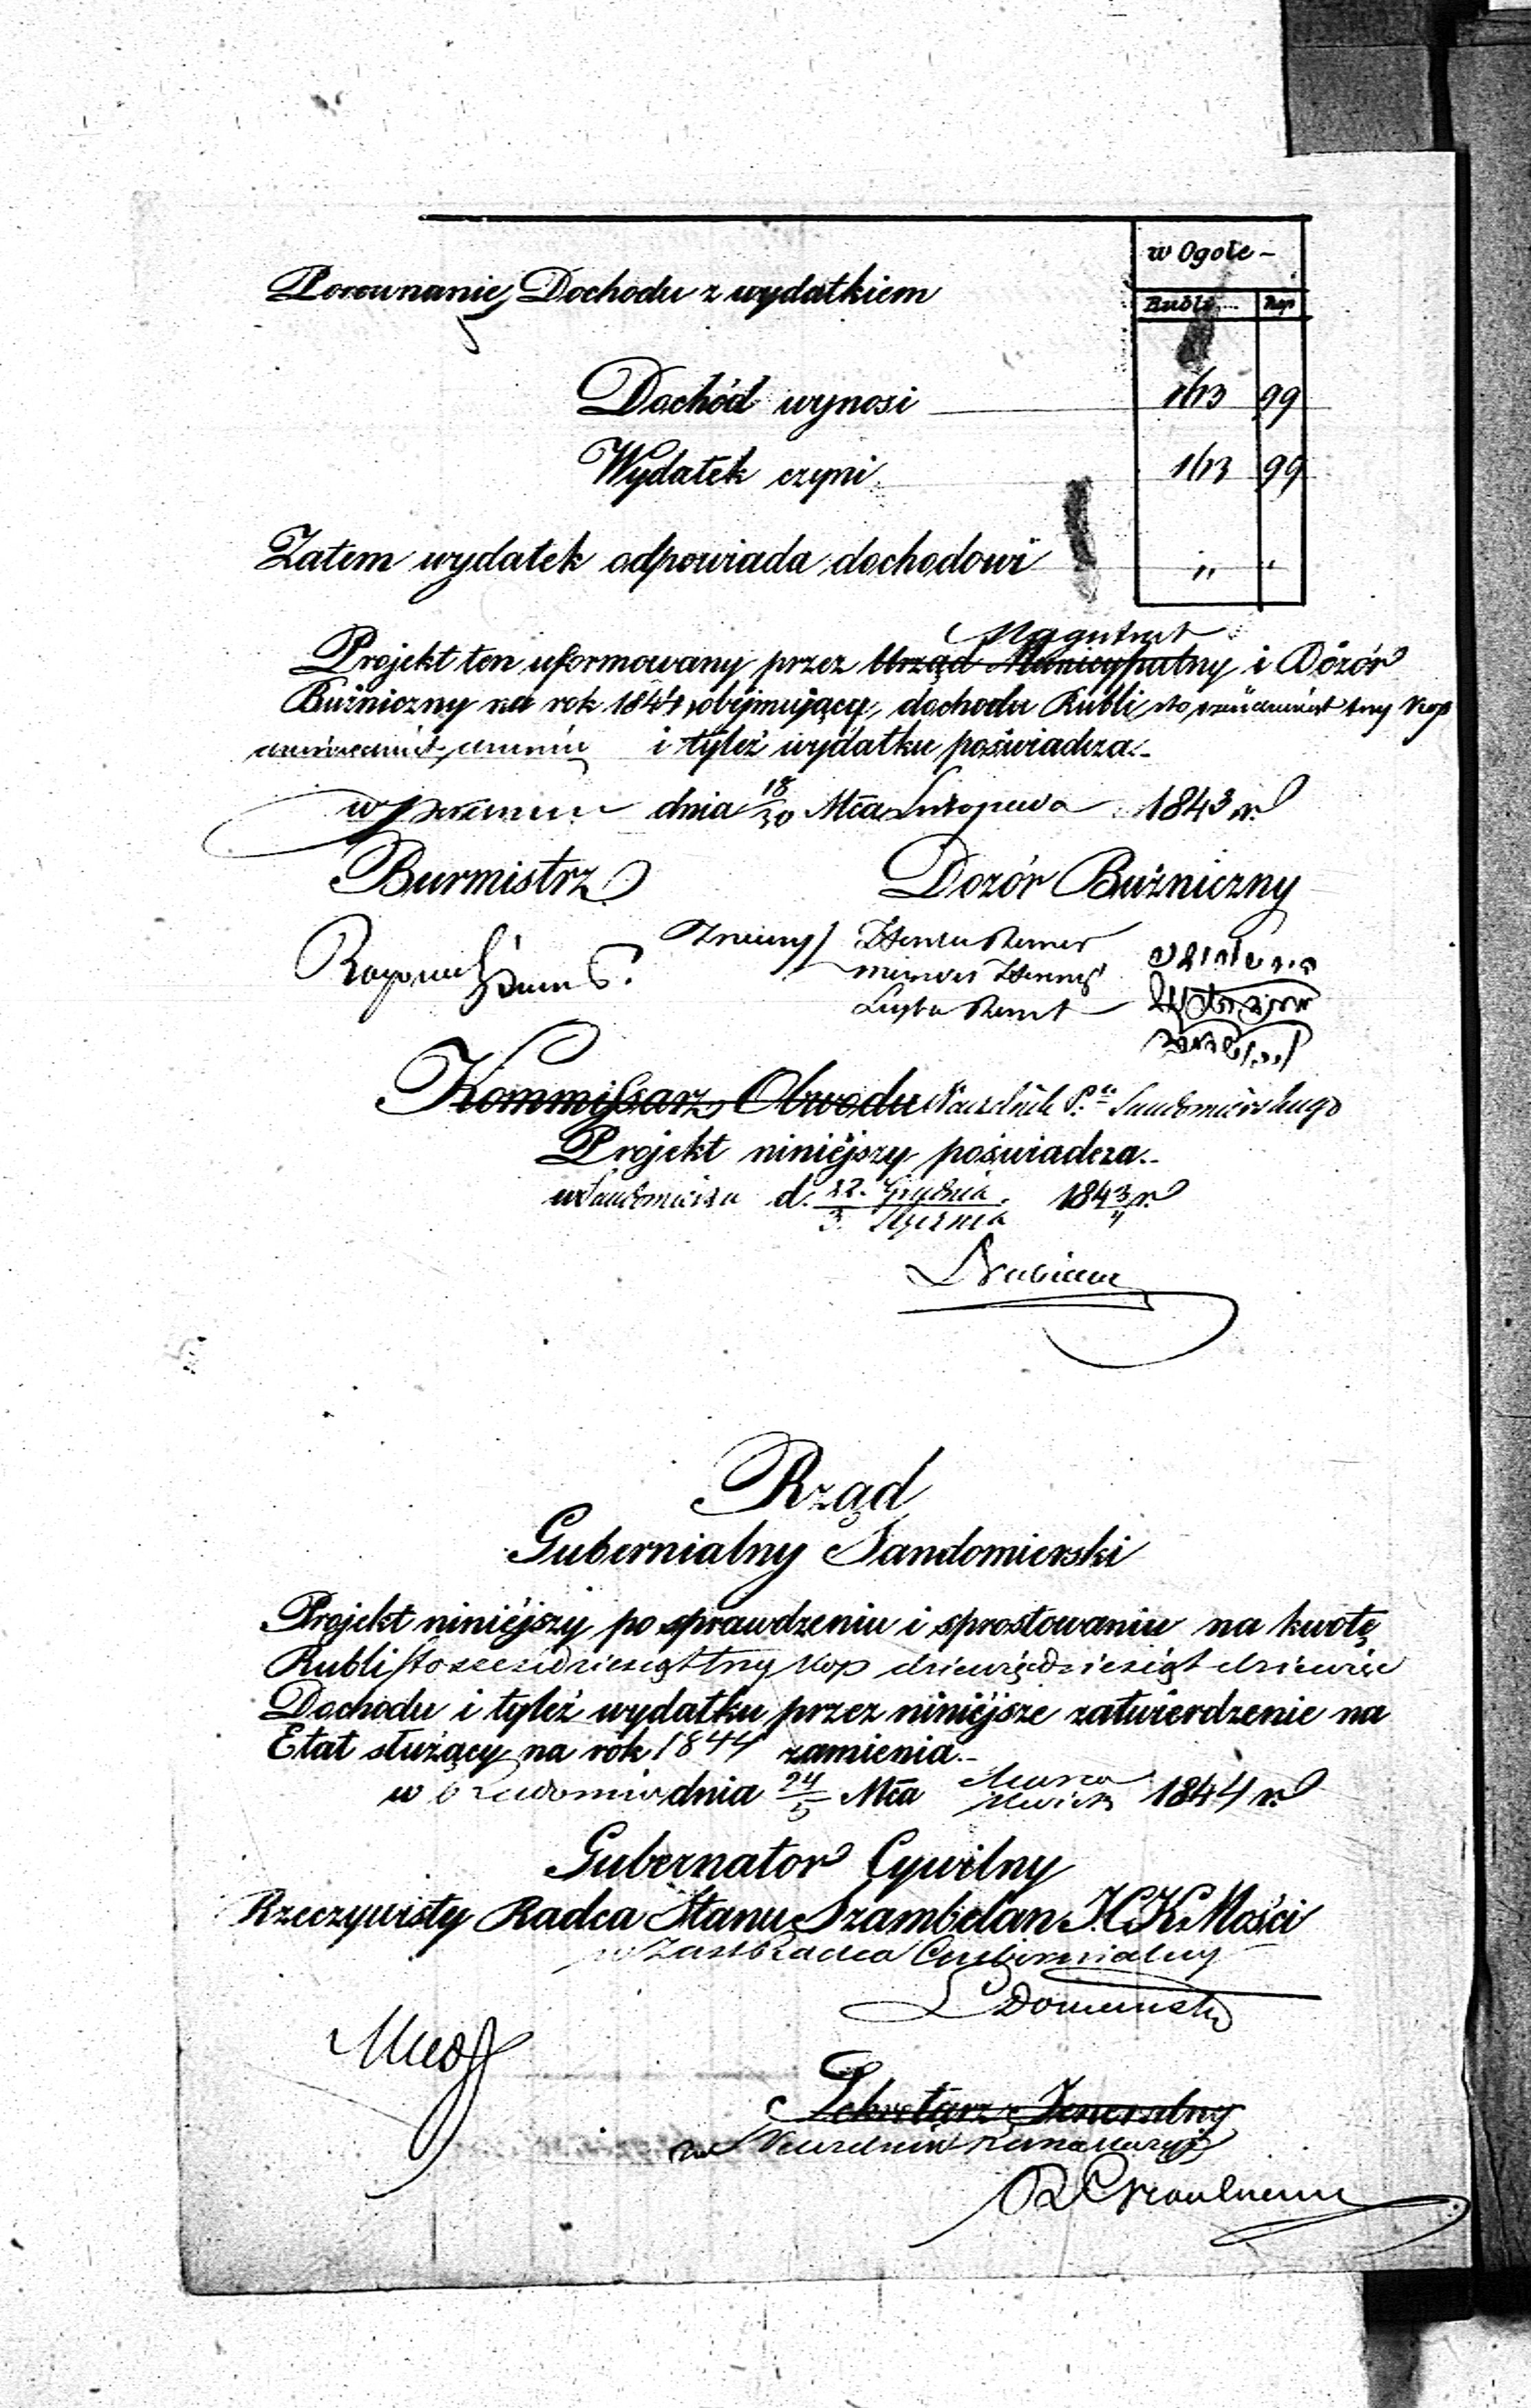 w Ogole -
Porownanie Dochodu z wydatkiem
Rubli Kop
Dochód wynosi 163 99
Wydatek czyni 163 99
Zatem wydatek odpowiada dochodowi " "
Magistrat
Projekt ten uformowany przez Urząd Municypalny i Dózór
Bużniczny na rok 1844 obijmujący dochodu Rubli sto sześćdziesiąt trzy Kop
dziewięćdziesiąt dziewięć i tyleż wydatku poświadcza.-
w dnia 18/30 Mca Listopada 1843 r.
Burmistrz Dozór Bużniczny
Kommissarz Obwodu Naczelnik P.tu Sandomirskiego
Projekt niniéjszy poświadcza.-
w Sandomirzu d. 22. Grudnia / 3. Stycznia 1843/4 r.
Rząd
Gubernialny Sandomierski
Projekt niniéjszy po sprawdzeniu i sprostowaniu na kwotę
Rubli sto sześćdziesiąt trzy Kop dziewięćdziesiąt dziewięć
Dochodu i tyleż wydatku przez niniéjsze zatwierdzenie na
Etat służący na rok 1844 zamienia.-
w Radomiu dnia 24/5 Mca Marca / Kwiet 1844 r.
Gubernator Cywilny
Rzeczywisty Radca Stanu Szambelan J.C.K. Mości
w Zast Radca Gubernialny
Sekretarz Jeneralny
w Naczelnik Kancellaryi